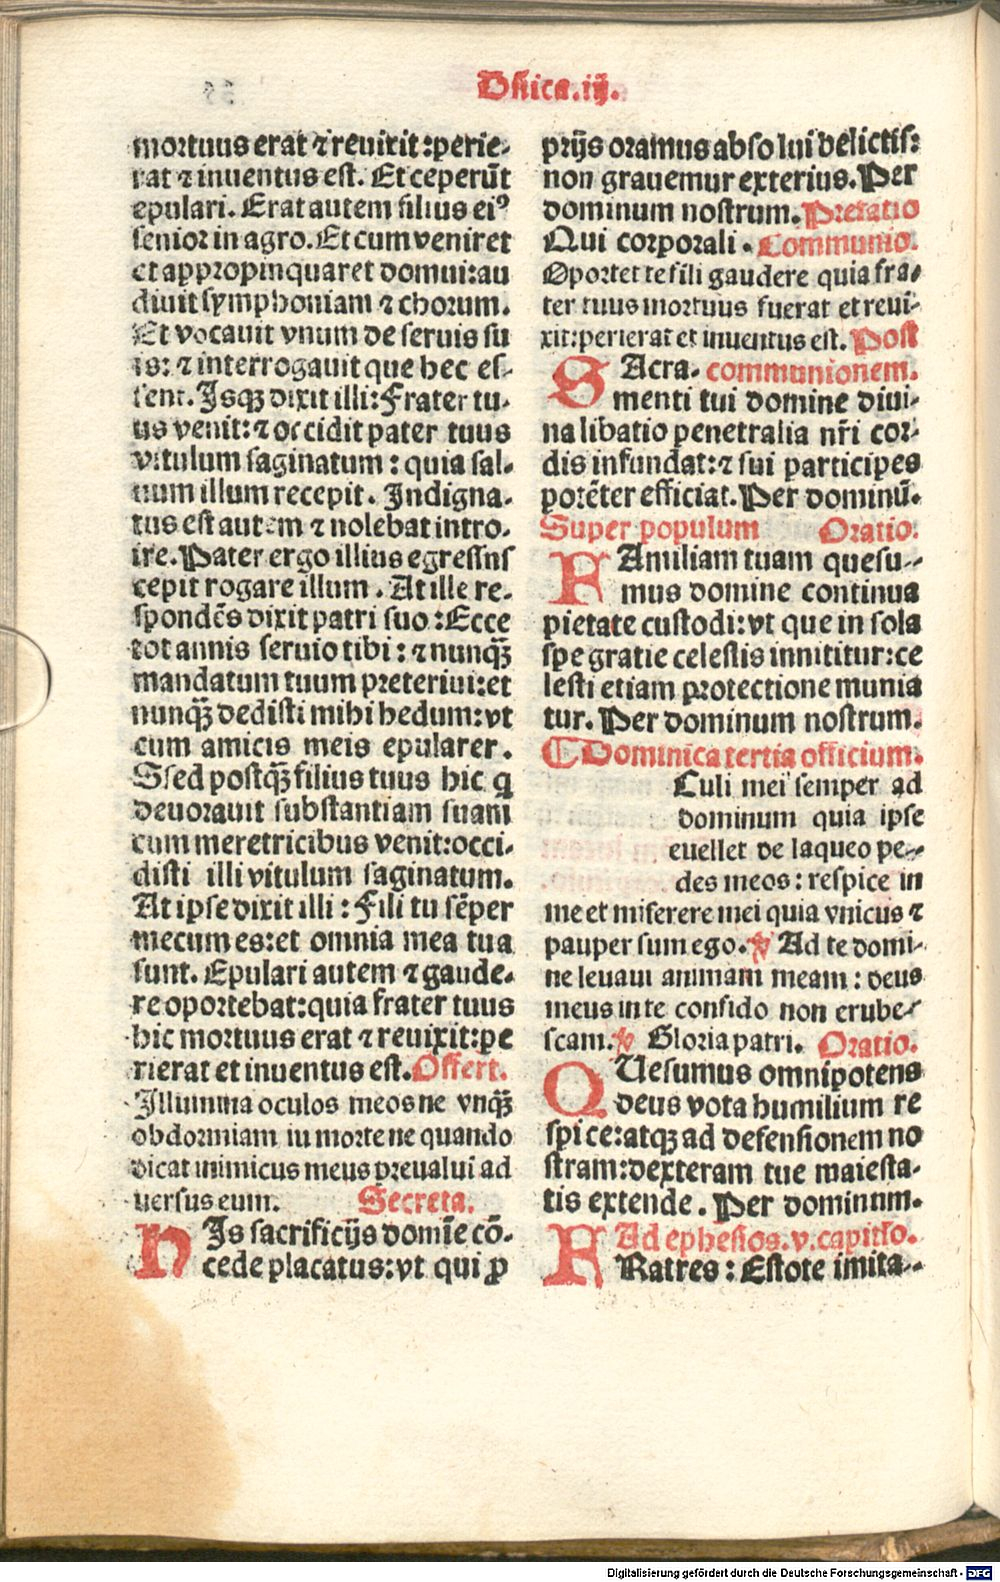 Dñica.iij.
mortuus erat ⁊ reuixit:perie-
rat ⁊ inuentus est. Et ceperūt
epulari. Erat autem filius eiꝰ
senior in agro. Et cum veniret
et appropinquaret domui:au
diuit symphoniam ⁊ chorum.
Et vocauit vnum de seruis su
is: ⁊ interrogauit que hec es-
sent. Isqꝫ dixit illi: Frater tu-
us venit:⁊ occidit pater tuus
vitulum saginatum: quia sal-
uum illum recepit. Indigna-
tus est autem ⁊ nolebat intro-
ire. Pater ergo illius egressns
cepit rogare illum. At ille re-
spondēs dixit patri suo: Ecce
tot annis seruio tibi: ⁊ nunqꝫ̄
mandatum tuum preteriui:et
nunqꝫ̄ dedisti mihi hedum:vt
cum amicis meis epularer.
Ssed postqꝫ̄ filius tuus hic q
deuorauit substantiam suam
cum meretricibus venit:occi-
disti illi vitulum saginatum.
At ipse dixit illi: Fili tu sēper
mecum es:et omnia mea tua
sunt. Epulari autem ⁊ gaude-
re oportebat:quia frater tuus
hic mortuus erat ⁊ reuixit:pe
rierat et inuentus est. Offert.
Illumina oculos meos ne vnqꝫ̄
obdormiam in morte ne quando
dicat inimicus meus preualui ad
versus eum. Secreta.
HIs sacrificijs domīe cō-
cede placatus:vt qui ꝓ
prijs oramus absolui delictis:
non grauemur exterius. Per
dominum nostrum. Prefatio
Qui corporali. Communio.
Oportet te fili gaudere quia fra-
ter tuus mortuus fuerat et reui-
xit:perierat et inuentus est. Post
SAcra- communionem.
menti tui domine diui-
na libatio penetralia nr̄i cor-
dis infundat:⁊ sui participes
potēter efficiat. Per dominū.
Super populum Oratio.
FAmiliam tuam quesu-
mus domine continua
pietate custodi:vt que in sola
spe gratie celestis innititur:ce
lesti etiam protectione munia
tur. Per dominum nostrum.
⁋ Dominica tertia officium.
Culi mei semper ad
dominum quia ipse
euellet de laqueo pe-
des meos: respice in
me et miserere mei quia vnicus ⁊
pauper sum ego. ℣ Ad te domi-
ne leuaui animam meam: deus
meus in te confido non erube-
scam. ℣ Gloria patri. Oratio.
QUesumus omnipotens
deus vota humilium re
spice:atqꝫ ad defensionem no
stram:dexteram tue maiesta-
tis extende. Per dominum.
Ad ephesios.v.capitlo.
FRatres: Estote imita-
Digitalisierung gefördert durch die Deutsche Forschungsgemeinschaft - DFG